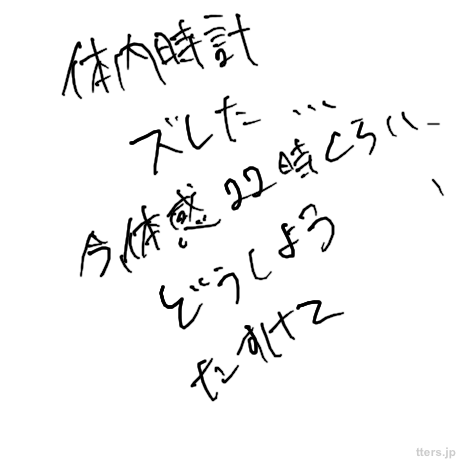 体内時計
ズレた...
今体感22時くらい
どうしよう
たすけて
tters.jp